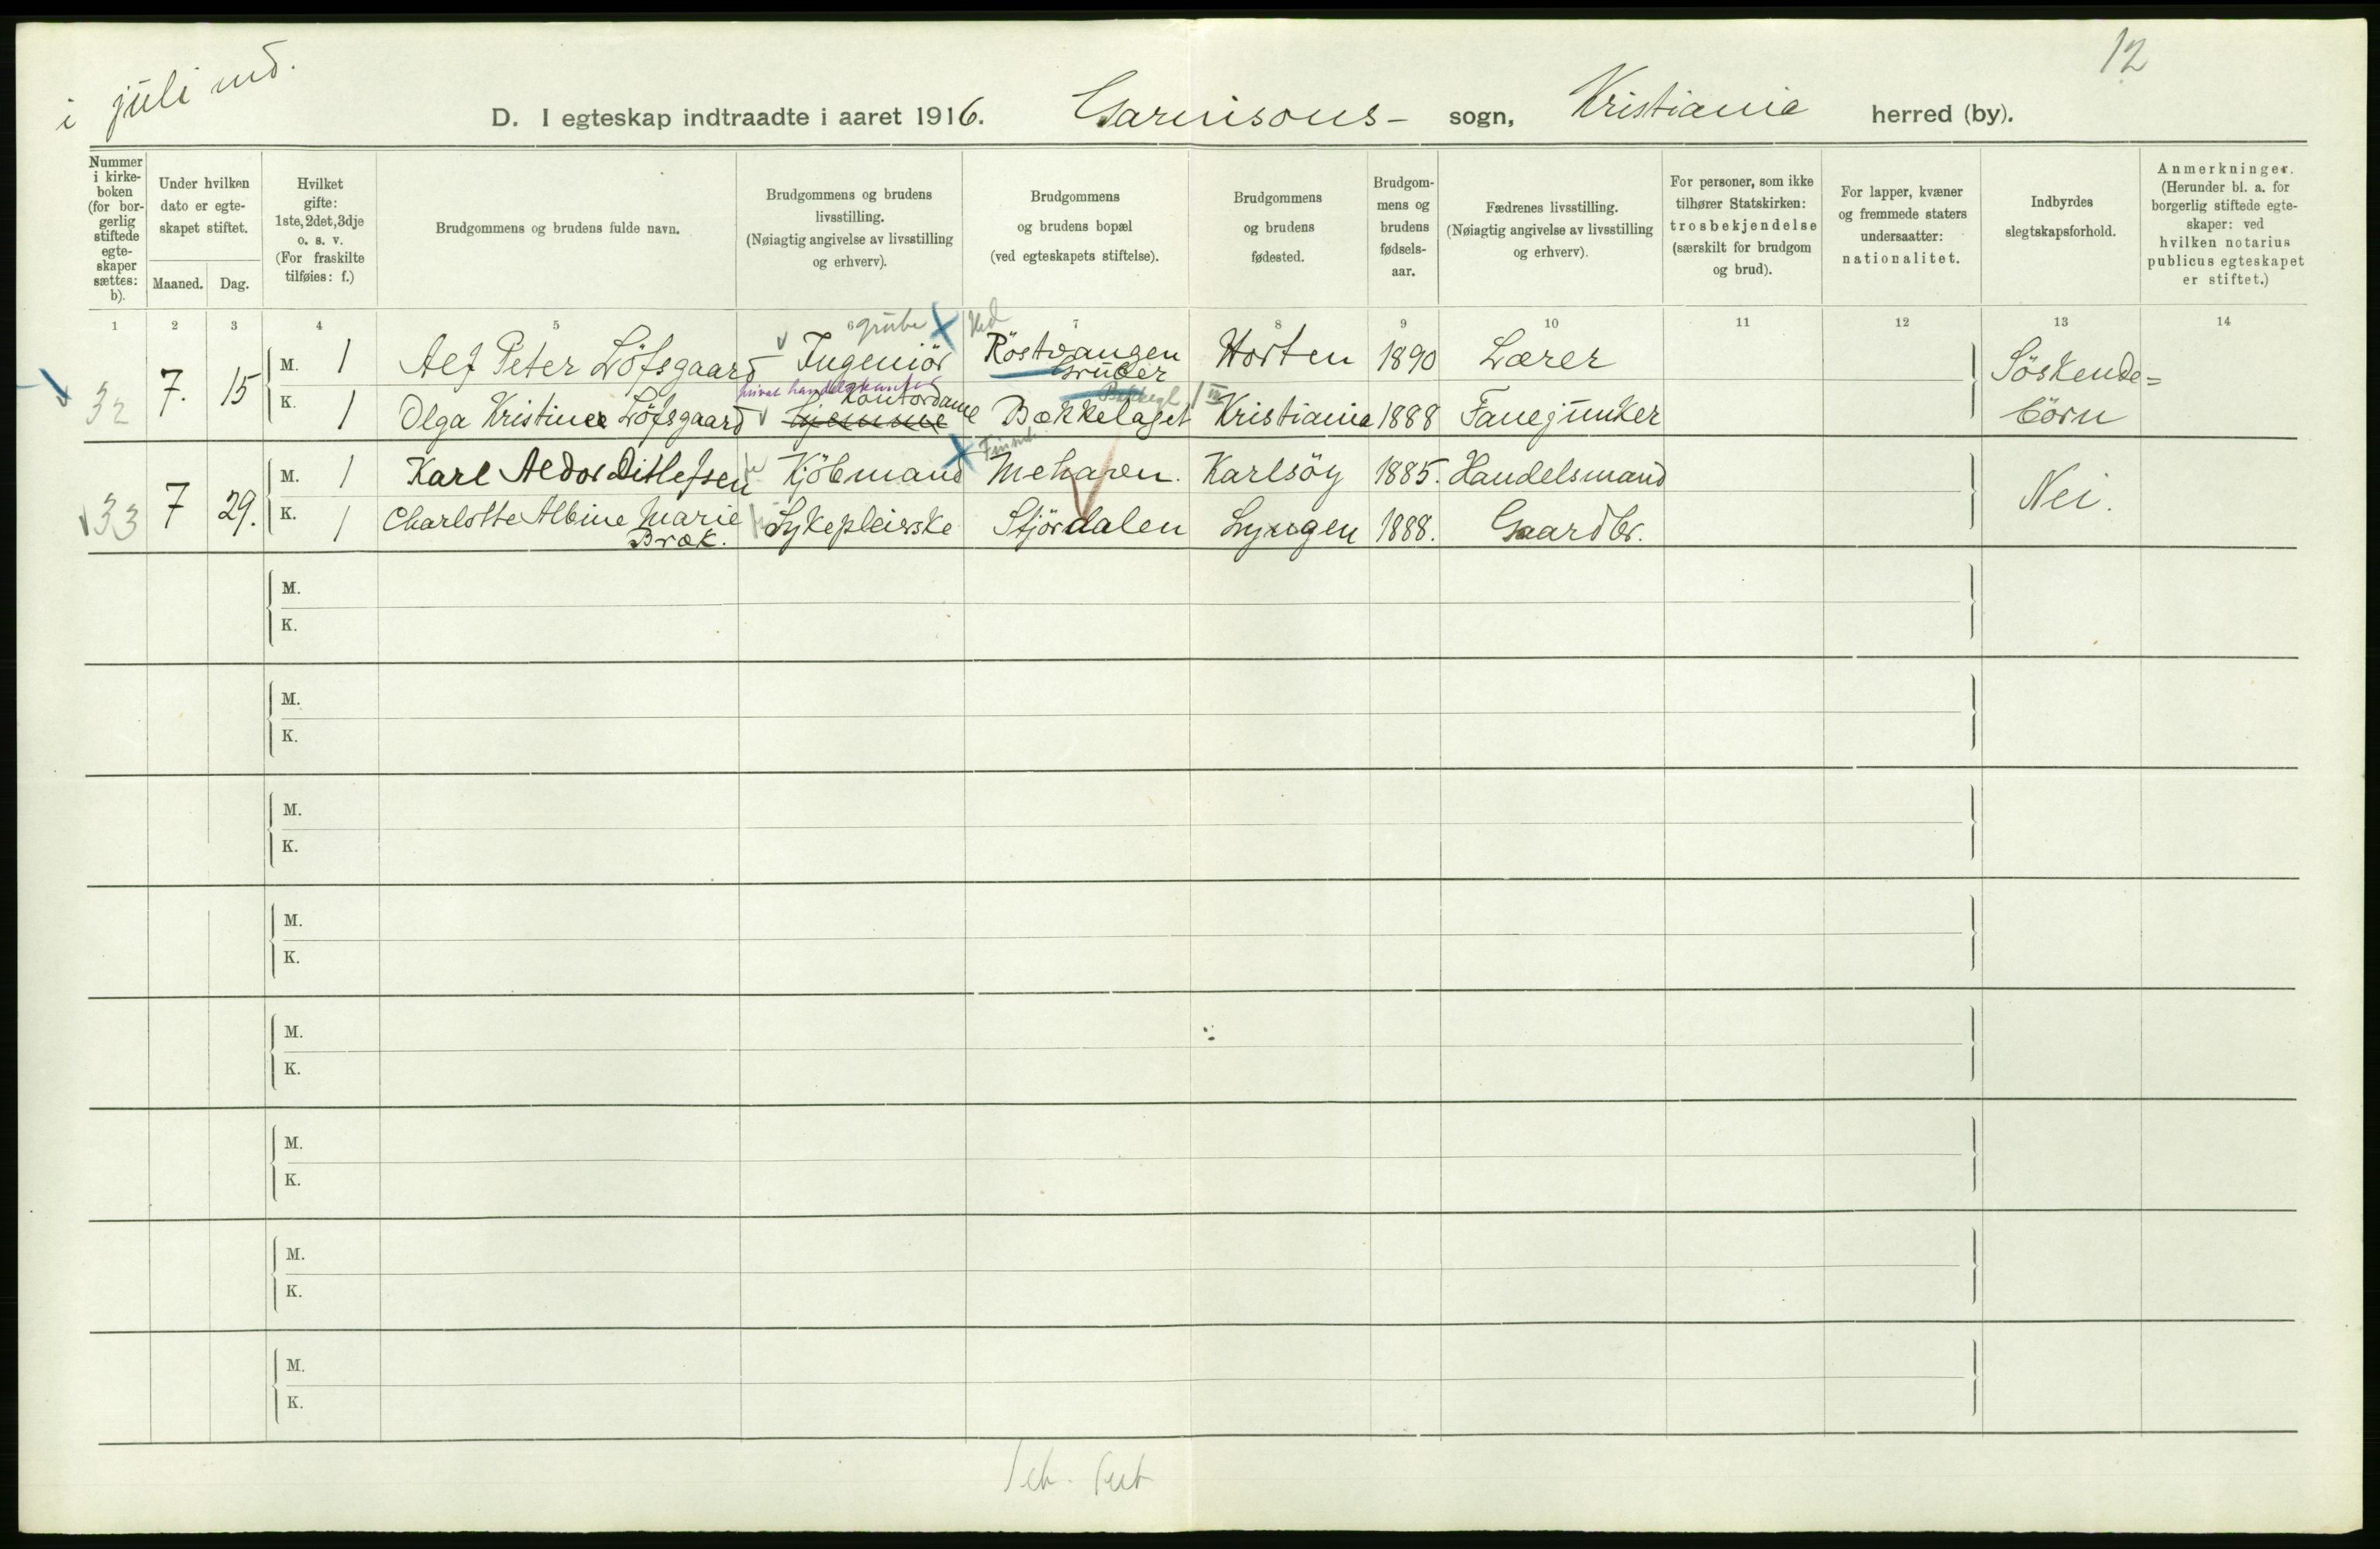 i juli md.
12
D. I egteskap indtraadte i aaret 1916. Garnisons- sogn, Kristiania herred (by).
Nummer i kirkeboken (for borgerlig stiftede egteskaper sættes: b).
Under hvilken dato er egteskapet stiftet.
Maaned. Dag.
Hvilket gifte: 1ste, 2det, 3dje o. s. v. (For fraskilte tilføies: f.)
Brudgommens og brudens fulde navn.
Brudgommens og brudens livsstilling. (Nøiagtig angivelse av livsstilling og erhverv).
Brudgommens og brudens bopæl (ved egteskapets stiftelse).
Brudgommens og brudens fødested.
Brudgommens og brudens fødselsaar.
Fædrenes livsstilling. (Nøiagtig angivelse av livsstilling og erhverv).
For personer, som ikke tilhører Statskirken: trosbekjendelse (særskilt for brudgom og brud).
For lapper, kvæner og fremmede staters undersaatter: nationalitet.
Indbyrdes slegtskapsforhold.
Anmerkninger. (Herunder bl. a. for borgerlig stiftede egteskaper: ved hvilken notarius publicus egteskapet er stiftet.)
1 2 3 4 5 6 7 8 9 10 11 12 13 14
grube Hed
32 7. 15 M. 1 Alf Peter Löfsgaard Ingeniör Röstvangen Gruber Horten 1890 Lærer Söskende=
privat handelskontor
K. 1 Olga Kristine Löfsgaard Kontordame Bækkelaget Kristiania 1888 Fanejunker börn
33 7 29. M. 1 Karl Aldor Ditlefsen Kjöbmand Mehavn. Karlsöy 1885. Handelsmand Nei.
K. 1 Charlotte Albine Marie Bræk. Sykepleierske Stjördalen Lyngen 1888. Gaardbr.
M.
K.
M.
K.
M.
K.
M.
K.
M.
K.
M.
K.
M.
K.
M.
K.